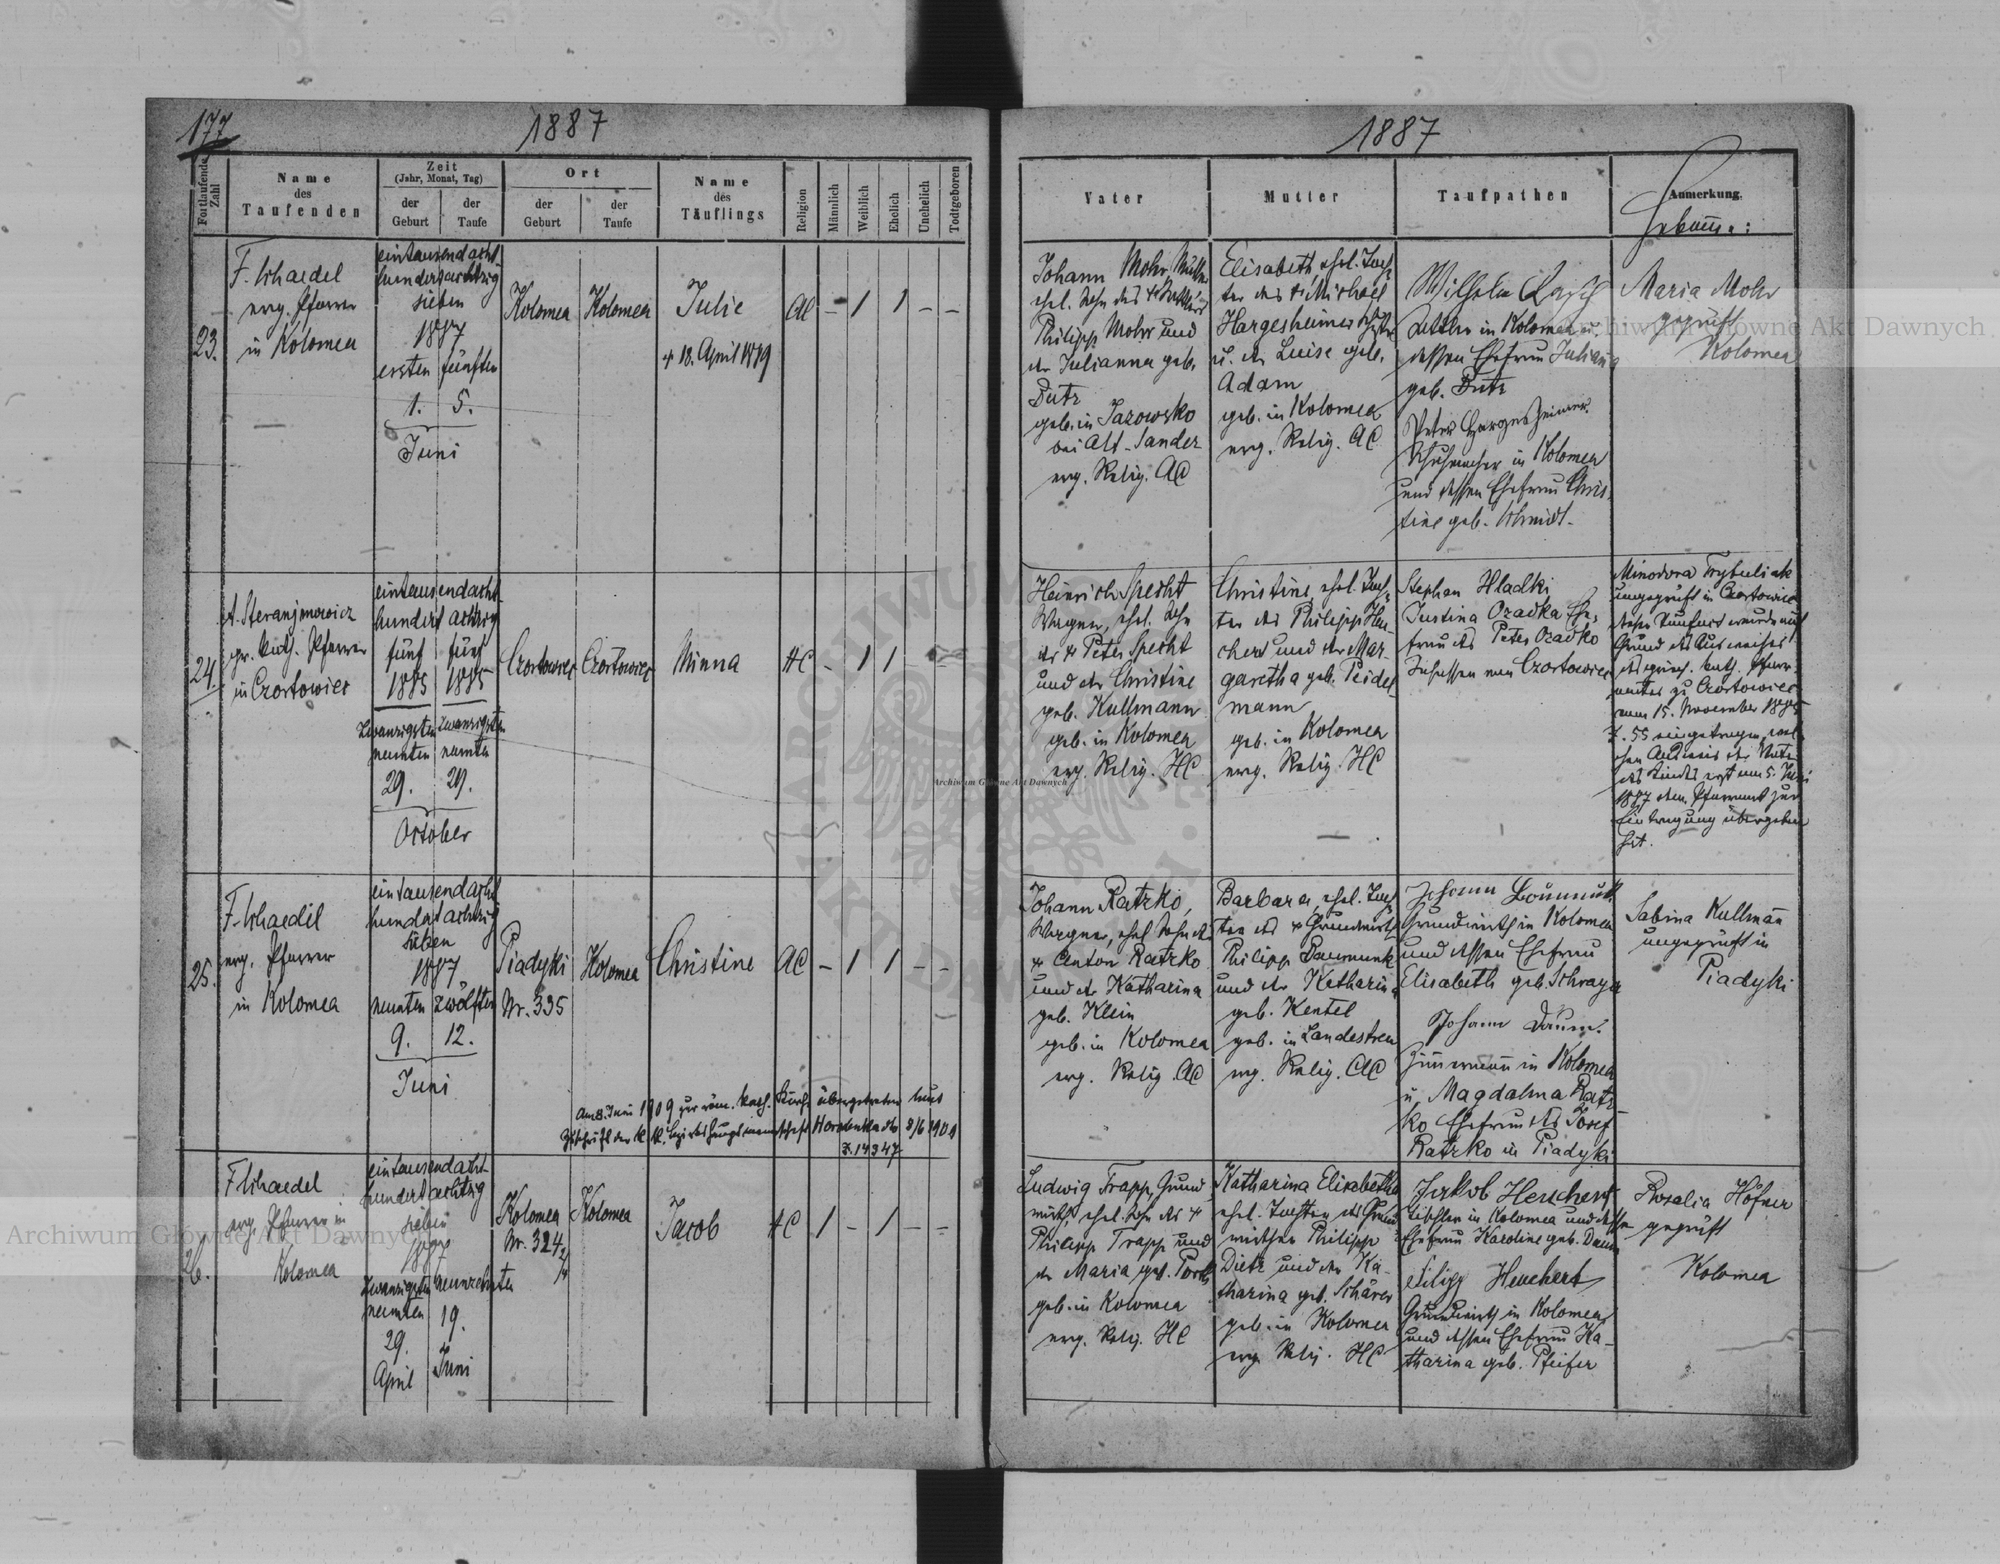 177
1887
Fortlaufende Zahl
Name des Taufenden
Zeit
(Jahr, Monat, Tag)
der Geburt
der Taufe
Ort
der Geburt
der Taufe
Name des Täuflings
Religion
Männlich
Weiblich
Ehelich
Unehelich
Todtgeboren
23.
F. Schaedel
evg. Pfarrer
in Kolomea
eintausendacht-
hundertachtzig
sieben
1887
ersten fünften
1. 5.
Juni
Kolomea
Kolomea
Julie
+ 18. April 1879
AC
– 1 1 – –
24.
gr. kath. Pfarrer
in Czortowiec
eintausendacht-
hundert achtzig
fünf fünf
1885 1885
zwanzigsten zwanzigsten
neunten neunten
29. 29.
October
Czortowiec
Czortowiec
Minna
HC
– 1 1 – =
25.
F. Schaedel
evg. Pfarrer
in Kolomea
eintausendacht
hundertachtzig
sieben
1887
neunten zwölften
9. 12.
Juni
Piadyki
Nr. 335
Kolomea
Christine
AC
– 1 1 – –
Am 8. Juni 1909 zur röm. kath. Kirche übergetreten laut
Zuschrift der k. k. Bezirkshauptmannschaft Horodenka dto 8/6 1909
Z. 14347
26.
F. Schaedel
evg. Pfarrer in
Kolomea
eintausendacht-
hundert achtzig
sieben
1887
zwanzigsten neunzehnten
neunten 19.
29.
April Juni
Kolomea
Nr. 324
Kolomea
Jacob
HC
1 – 1 – =
1887
Vater
Mutter
Taufpathen
Anmerkung.
Hebamme:
Johann Mohr,
ehel. Sohn des +
Philipp Mohr und
der Julianna geb.
Dutz
geb. in Jazowsko
bei Alt-Sandez
evg. Relig. AC
Elisabeth, ehel. Toch-
ter des + Michael
Hargesheimer
u. der Luise geb.
Adam
geb. in Kolomea
evg. Relig. AC
Wilhelm
in Kolomea u.
dessen Ehefrau Juliana
geb. Dutz
Peter Hargesheimer
Schuhmacher in Kolomea
und dessen Ehefrau Chris-
tine geb. Schmidt.
Maria Mohr
geprüft
Kolomea
Heinrich Specht
Wagner, ehel. Sohn
des + Peter Specht
und der Christine
geb. Kullmann
geb. in Kolomea
evg. Relig. HC
Christine, ehel. Toch-
ter des Philipp
und der Mar-
garetha geb.
mann
geb. in Kolomea
evg. Relig. HC
Stephan Hladki
Justina Ozadka Ehe-
frau des Peter Ozadko
Insassen von Czortowiec
Minodora Trybuliak
ungeprüft in Czortowiec
dieser Taufact wurde auf
Grund des Ausweises
des griech. kath. Pfarr-
amtes zu Czortowiec
vom 15. November 1885
Z. 55 eingetragen, wel-
chen Ausweis der Vater
des Kindes erst am 5. Juni
1887 dem Pfarramt zur
Eintragung übergeben
hat.
Johann Ratzko,
Wagner, ehel. Sohn des
+ Anton Ratzko
und der Katharina
geb. Klein
geb. in Kolomea
evg. Relig. AC
Barbara, ehel. Toch-
ter des + Grundwirth
Philipp Daumunk
und der Katharina
geb. Kentel
geb. in Landestreu
evg. Relig. AC
Johann
Grundwirth in Kolomea
und dessen Ehefrau
Elisabeth geb. Schraya
Johann Daum.
Zimmermann in Kolomea
u. Magdalena Ratz-
ko Ehefrau des Josef
Ratzko in Piadyki
Sabina Kullmann
ungeprüft in
Piadyki
Ludwig Trapp, Grund-
wirth, ehel. Sohn des +
Philipp Trapp und
der Maria, geb.
geb. in Kolomea
evg. Relig. HC
Katharina Elisabetha
ehel. Tochter des Grund-
wirthen Philipp
Dietz und der Ka-
tharina geb. Schärer
geb. in Kolomea
evg. Relig. HC
Jakob Heuchert
Tischler in Kolomea und dessen
Ehefrau Karoline geb. Daum
Filipp Heuchert
Grundwirth in Kolomea
und dessen Ehefrau Ka-
tharina geb. Pfeifer
Rosalia Höfner
geprüft
Kolomea
Archiwum Główne Akt Dawnych
Archiwum Główne Akt Dawnych
Archiwum Główne Akt Dawnych